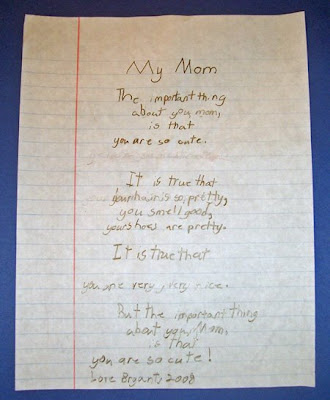 My Mom
The important thing
about you, mom,
is that
you are so cute.
It is true that
your hair is so, pretty,
you smell good,
your shoes are pretty.
It is true that
you are very, very nice.
But the important thing
about you, Mom,
is that
you are so cute!
Love Bryant, 2008